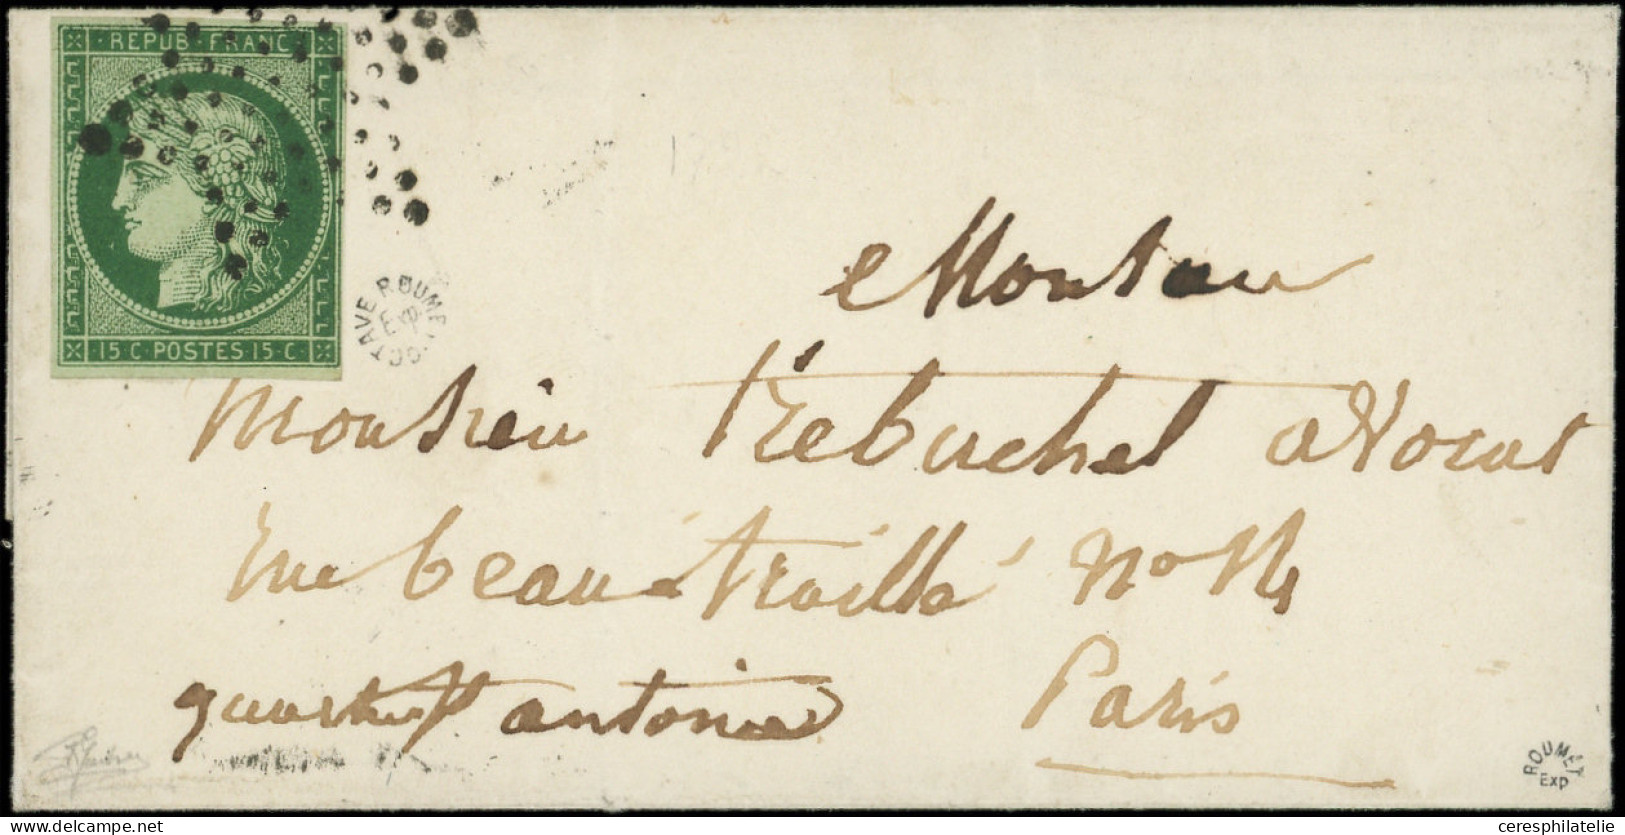 REPUB FRANC
15 C. POSTES 15 C.
OCTAVE ROUMET
EXP
Monsieur
Monsieur Trébuchet avocat
rue beautreillé N°
quartier St antoine Paris
ROUMET
EXP
www.delcampe.net
ceresphilatelie